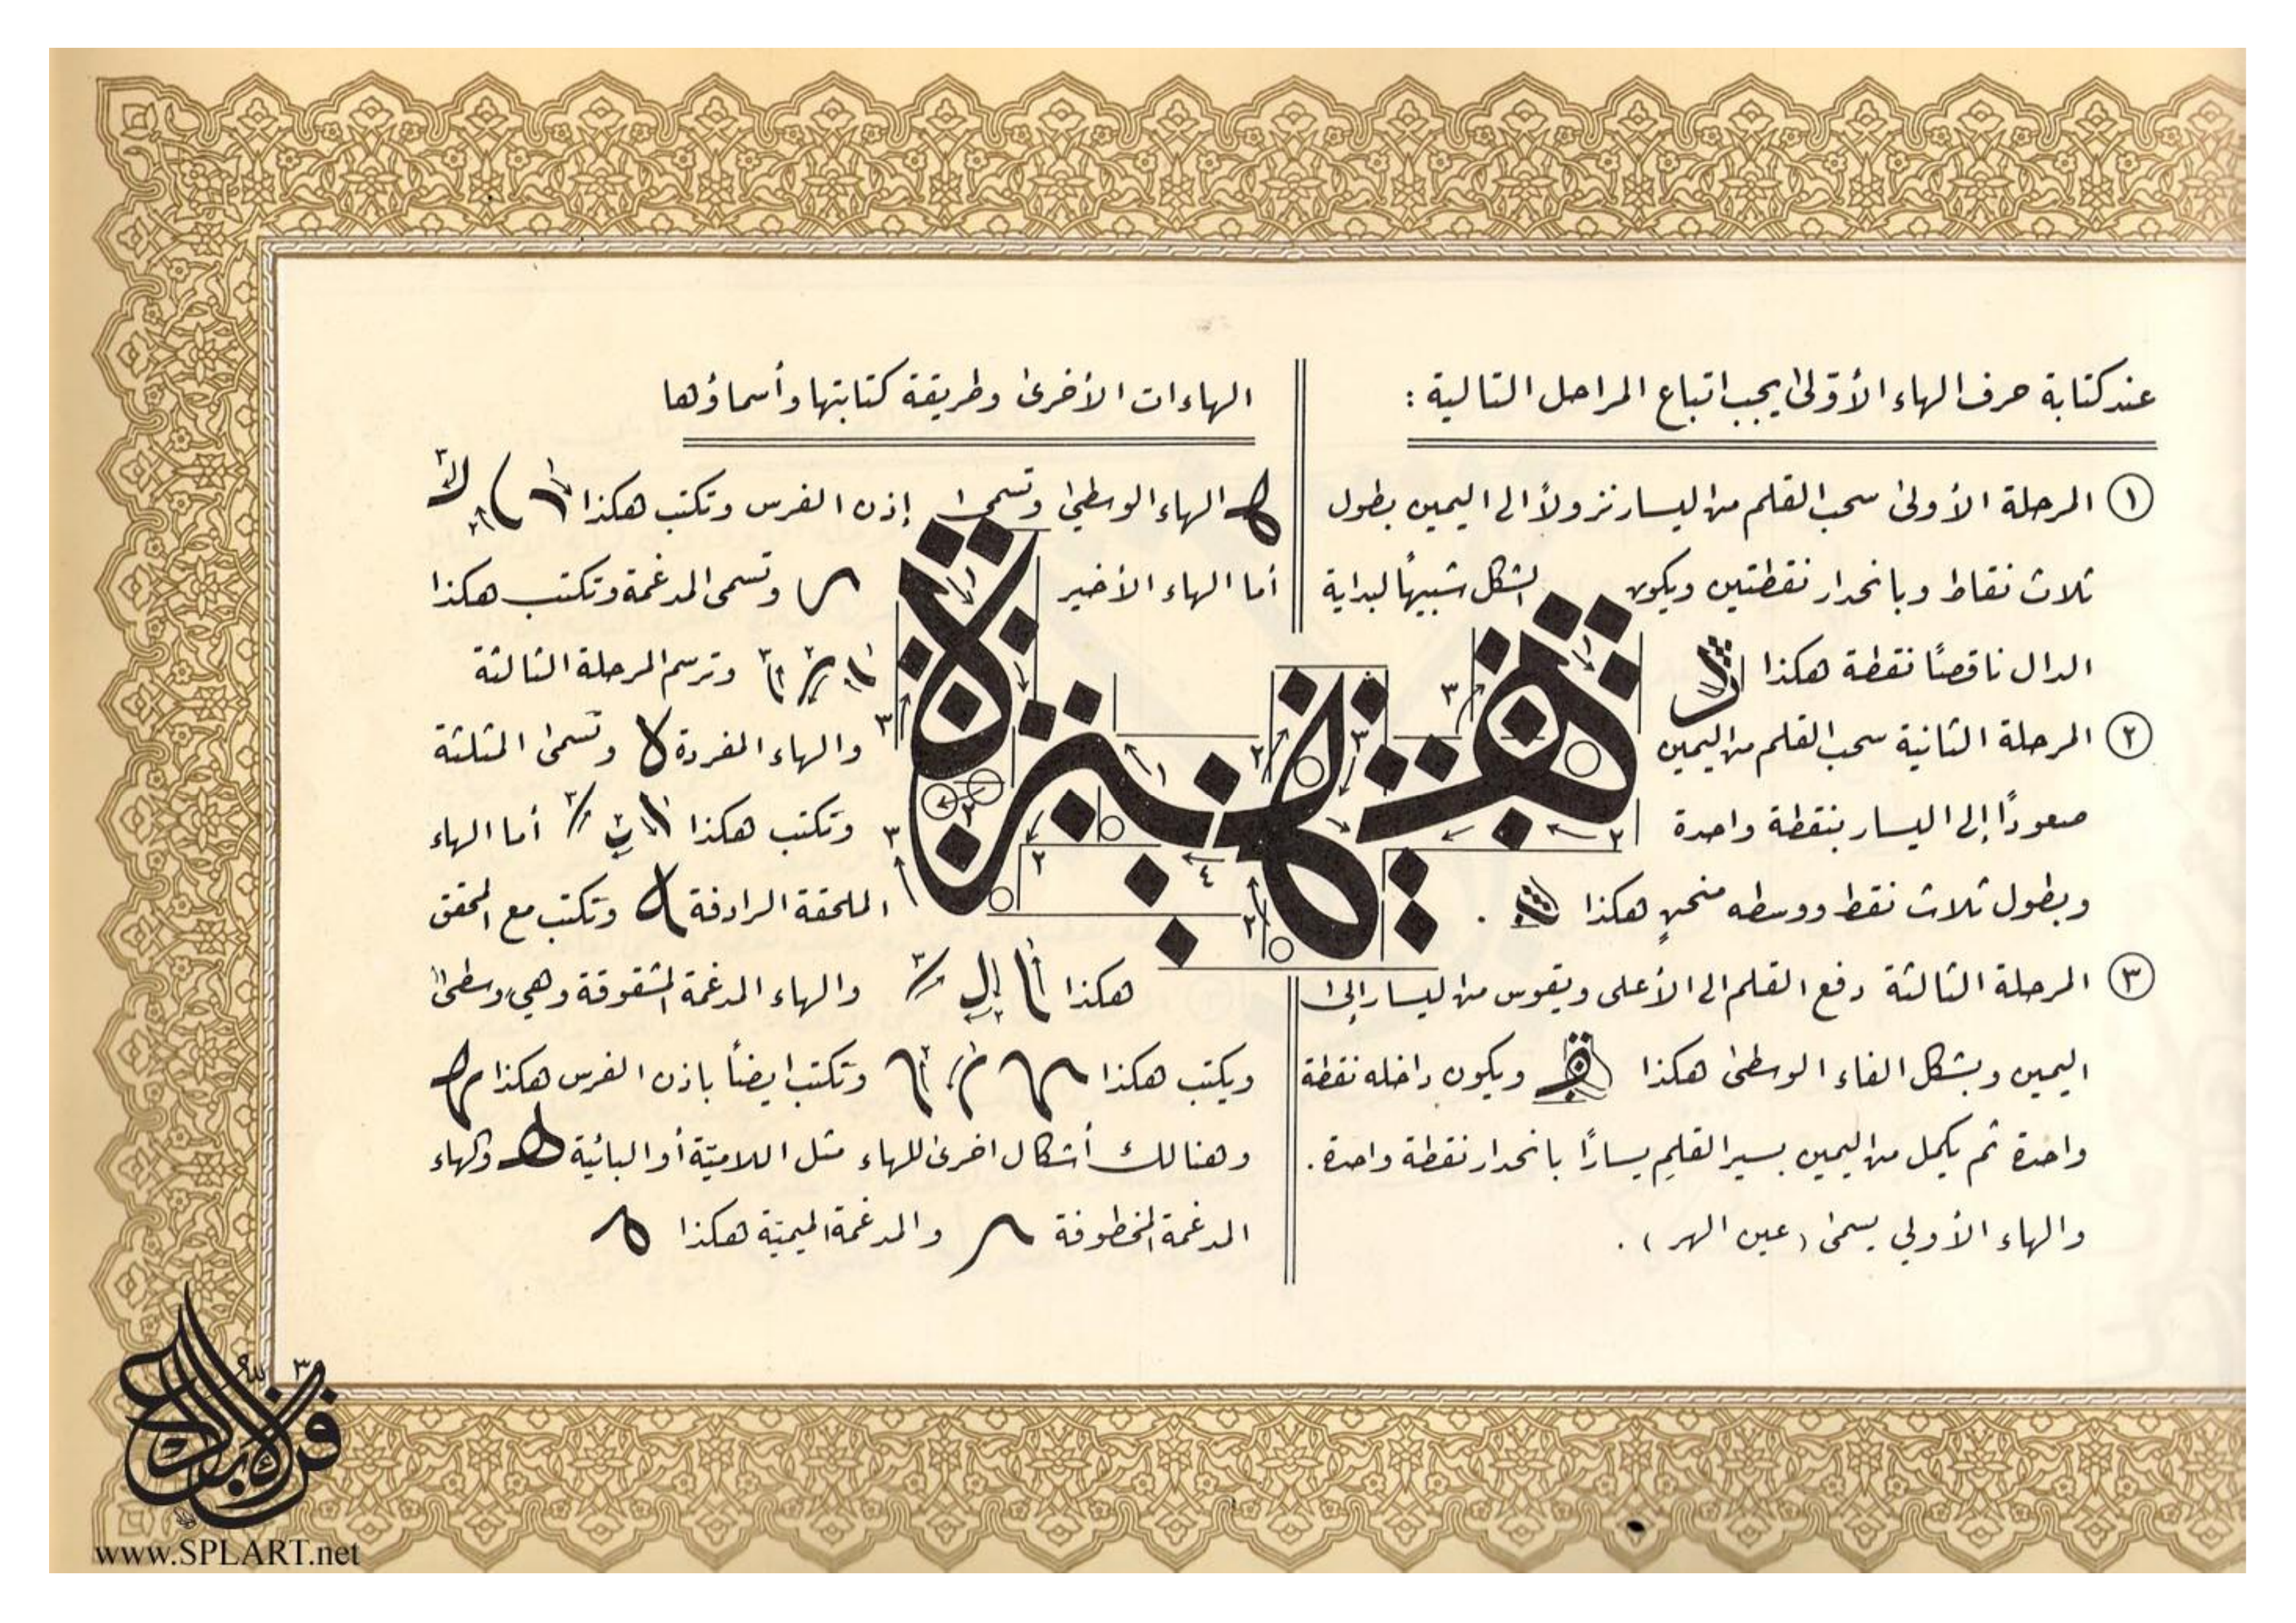 عند كتابة حرف الهاء الأوّلى يجب اتباع المراحل التالية :
١ المرحلة الأولى سحب القلم من اليسار نزولاً الى اليمين بطول
ثلاث نقاط وبانحدار نقطتين ويكون الشكل شبيهاً لبداية
الدال ناقصاً نقطة هكذا
٢ المرحلة الثانية سحب القلم من اليمين
صعوداً إلى اليسار بنقطة واحدة
وبطول ثلاث نقط ووسطه منحنٍ هكذا .
٣ المرحلة الثالثة دفع القلم الى الأعلى ويقوس من ليسار إلى
اليمين وبشكل الفاء الوسطى هكذا ويكون داخله نقطة
واحدة ثم يكمل من اليمين بسير القلم يساراً بانحدار نقطة واحدة .
والهاء الأولى يسمى ( عين الهر ) .
الهاءات الأخرى وطريقة كتابتها وأسماؤها
الهاء الوسطى وتسمى إذن الفرس وتكتب هكذا
أما الهاء الأخير وتسمى المدغمة وتكتب هكذا
وترسم المرحلة الثالثة
والهاء المفردة ه وتسمى المثلثة
وتكتب هكذا أما الهاء
الملحقة الرادفة وتكتب مع المحقق
هكذا والهاء المدغمة المشقوقة وهي وسطى
ويكتب هكذا وتكتب ايضاً باذن الفرس هكذا
وهنالك أشكال اخرى للهاء مثل اللاميّة أو البائية والهاء
المدغمة المخطوفة والمدغمة الميميّة هكذا
www.SPLART.net